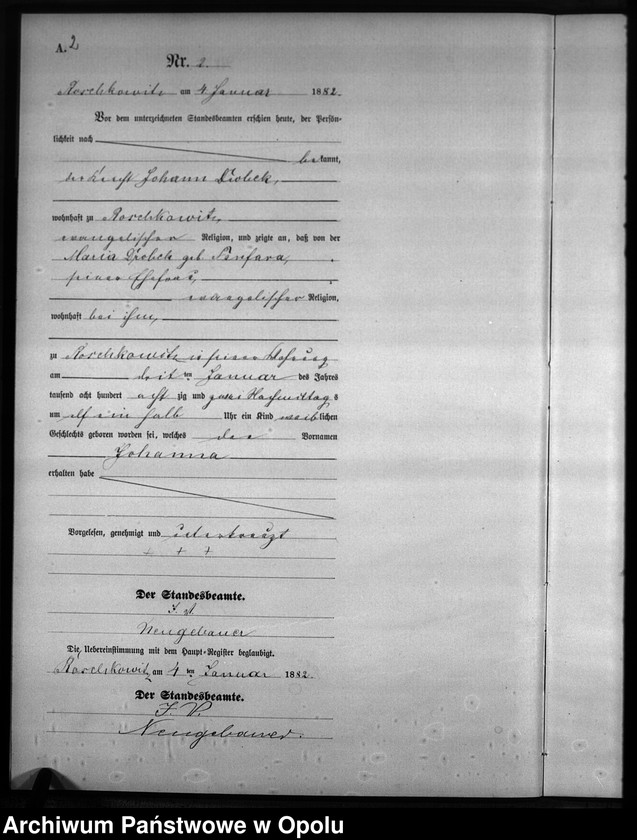 A. 2
Nr. 2.
Roschkowitz am 4 Januar 1882.
Vor dem unterzeichneten Standesbeamten erschien heute, der Persön-
lichkeit nach
bekannt,
der Knecht Johann
wohnhaft zu Roschkowitz,
evangelischer Religion, und zeigte an, daß von der
Maria geb
seiner Ehefrau,
evangelischer Religion,
wohnhaft bei ihm,
zu Roschkowitz in seiner Wohnung
am ten Januar des Jahres
tausend acht hundert acht zig und zwei Nachmittag s
um elf ein halb Uhr ein Kind weib lichen
Geschlechts geboren worden sei, welches den Vornamen
Johanna
erhalten habe
Vorgelesen, genehmigt und unterkreuzt
+ + +
Der Standesbeamte.
Neugebauer
Die Uebereinstimmung mit dem Haupt-Register beglaubigt.
Roschkowitz am 4 ten Januar 1882.
Der Standesbeamte.
J. V.
Neugebauer.
Archiwum Państwowe w Opolu